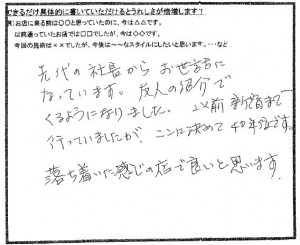 できるだけ具体的に書いていただけるとうれしさが倍増します!
例)お店に来る前は〇〇と思っていたのに、今は△△です。
以前通っていたお店では□□でしたが、今は◇◇です。
今回の施術は××でしたが、今後は〜〜なスタイルにしたいと思います。・・・など
先代の社長からお世話に
なっています。友人の紹介で
くるようになりました。以前新宿まで
行っていましたが、ここに決めて40年位です。
落ち着いた感じの店で良いと思います。